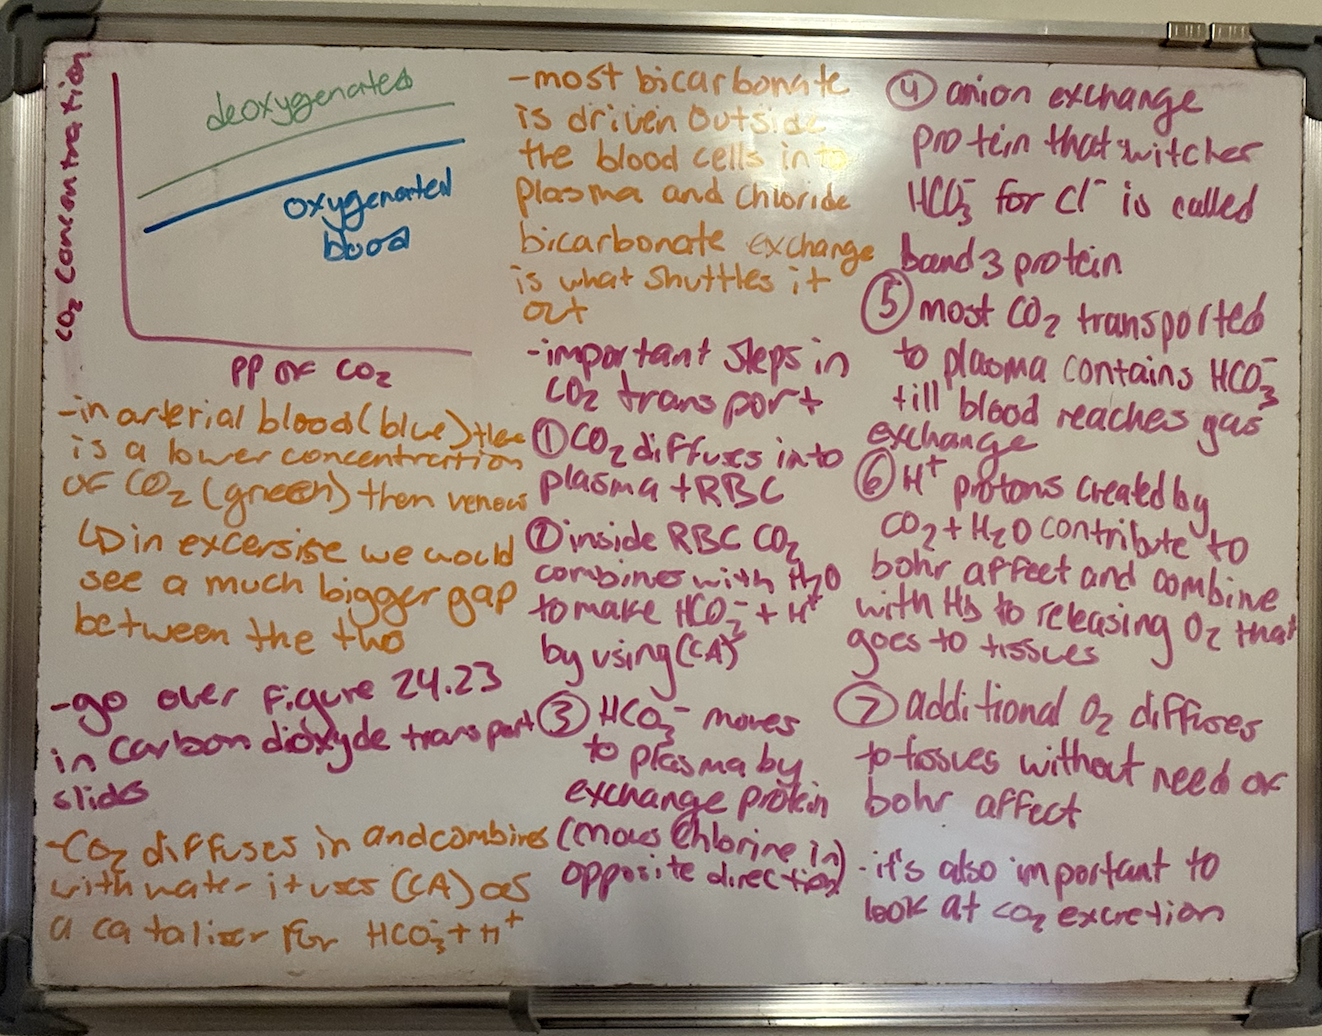 CO2 Concentration
deoxygenated
oxygenarted
blood
PP of CO2
-in arterial blood (blue) ther
is a lower concentrartion
of CO2 (green) then venous
↳ in excersise we would
see a much bigger gap
between the two
-go over Figure 24.23
in Carbon dioxyde transport
slides
-CO2 diffuses in and combines
with water it uses (CA) as
a catalizer for HCO3⁻ + H⁺
-most bicarbonate
is driven outside
the blood cells into
plasma and chloride
bicarbonate exchange
is what shuttles it
out
-important steps in
CO2 transport
① CO2 diffuses into
plasma + RBC
② inside RBC CO2
combines with H2O
to make HCO3⁻ + H⁺
by using (CA)
③ HCO3⁻ moves
to plasma by
exchange protein
(moves Chlorine in)
opposite direction)
④ anion exchange
protein that switches
HCO3⁻ for Cl⁻ is called
band 3 protein
⑤ most CO2 transported
to plasma contains HCO3⁻
till blood reaches gas
exchange
⑥ H⁺ protons created by
CO2 + H2O contribute to
bohr affect and combine
with Hb to releasing O2 that
goes to tissues
⑦ additional O2 diffuses
to tissues without need of
bohr affect
- it's also important to
look at CO2 excretion